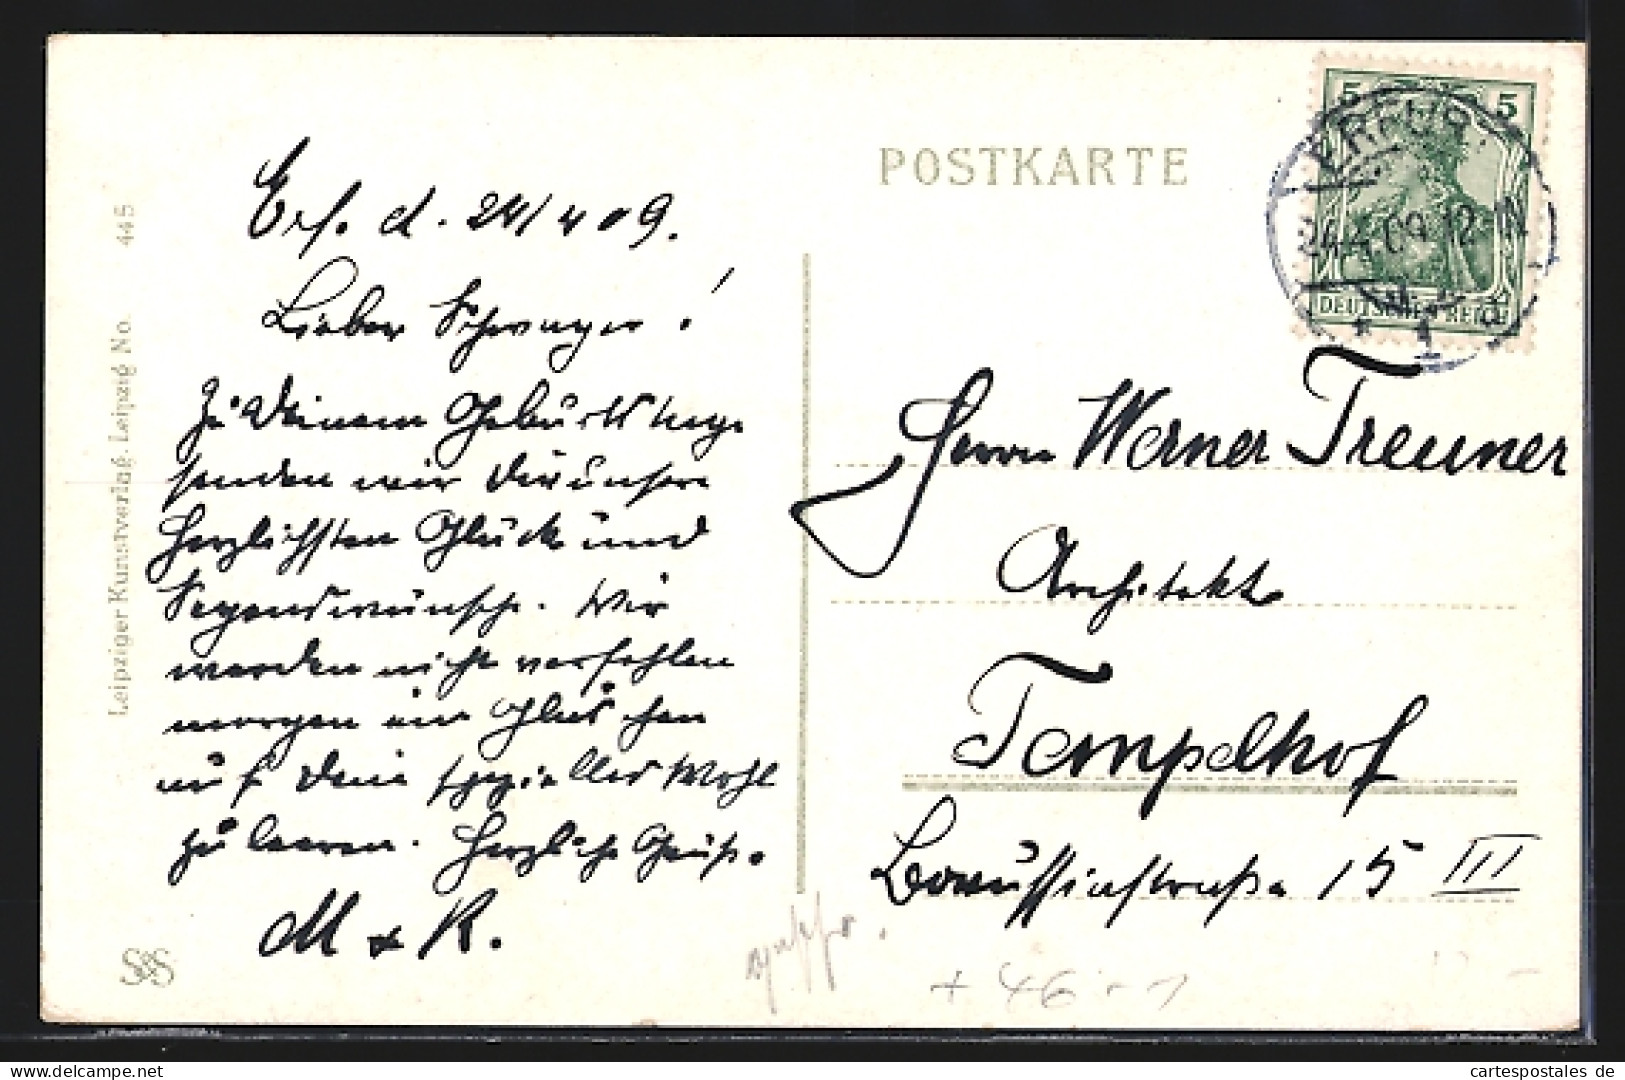 POSTKARTE
ERFURT
24.4.09.12-1N
* 1 d
5 5
DEUTSCHES REICH
Erf. d. 24/4 09.
Lieber Schwager!
Zu Deinem Geburtstage
senden wir Dir unsere
herzlichsten Glück- und
Segenswünsche. Wir
werden nicht verfehlen
morgen ein Gläschen
auf Dein spezielles Wohl
zu leeren. Herzliche Grüße.
M & R.
Herrn Werner Treuner
Architekt
Tempelhof
Borussiastraße 15 III
Leipziger Kunstverlag. Leipzig No. 445
S&S
+ 46
cartespostales de